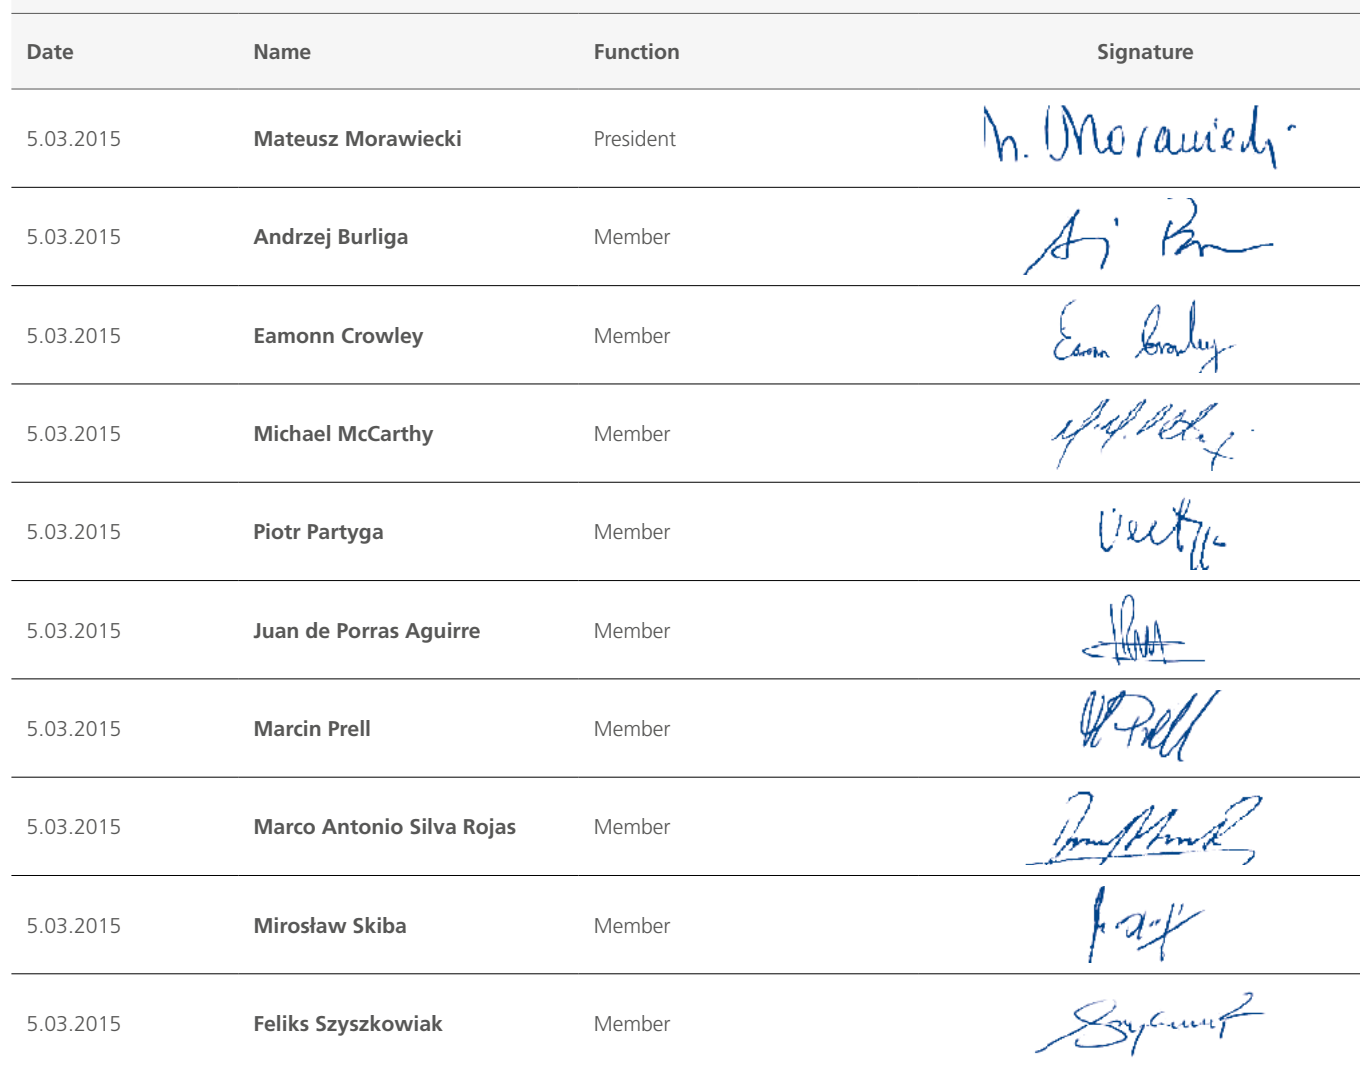 Date Name Function Signature
5.03.2015 Mateusz Morawiecki President M. Morawiecki
5.03.2015 Andrzej Burliga Member
5.03.2015 Eamonn Crowley Member Eamonn Crowley
5.03.2015 Michael McCarthy Member
5.03.2015 Piotr Partyga Member
5.03.2015 Juan de Porras Aguirre Member
5.03.2015 Marcin Prell Member M Prell
5.03.2015 Marco Antonio Silva Rojas Member
5.03.2015 Mirosław Skiba Member
5.03.2015 Feliks Szyszkowiak Member